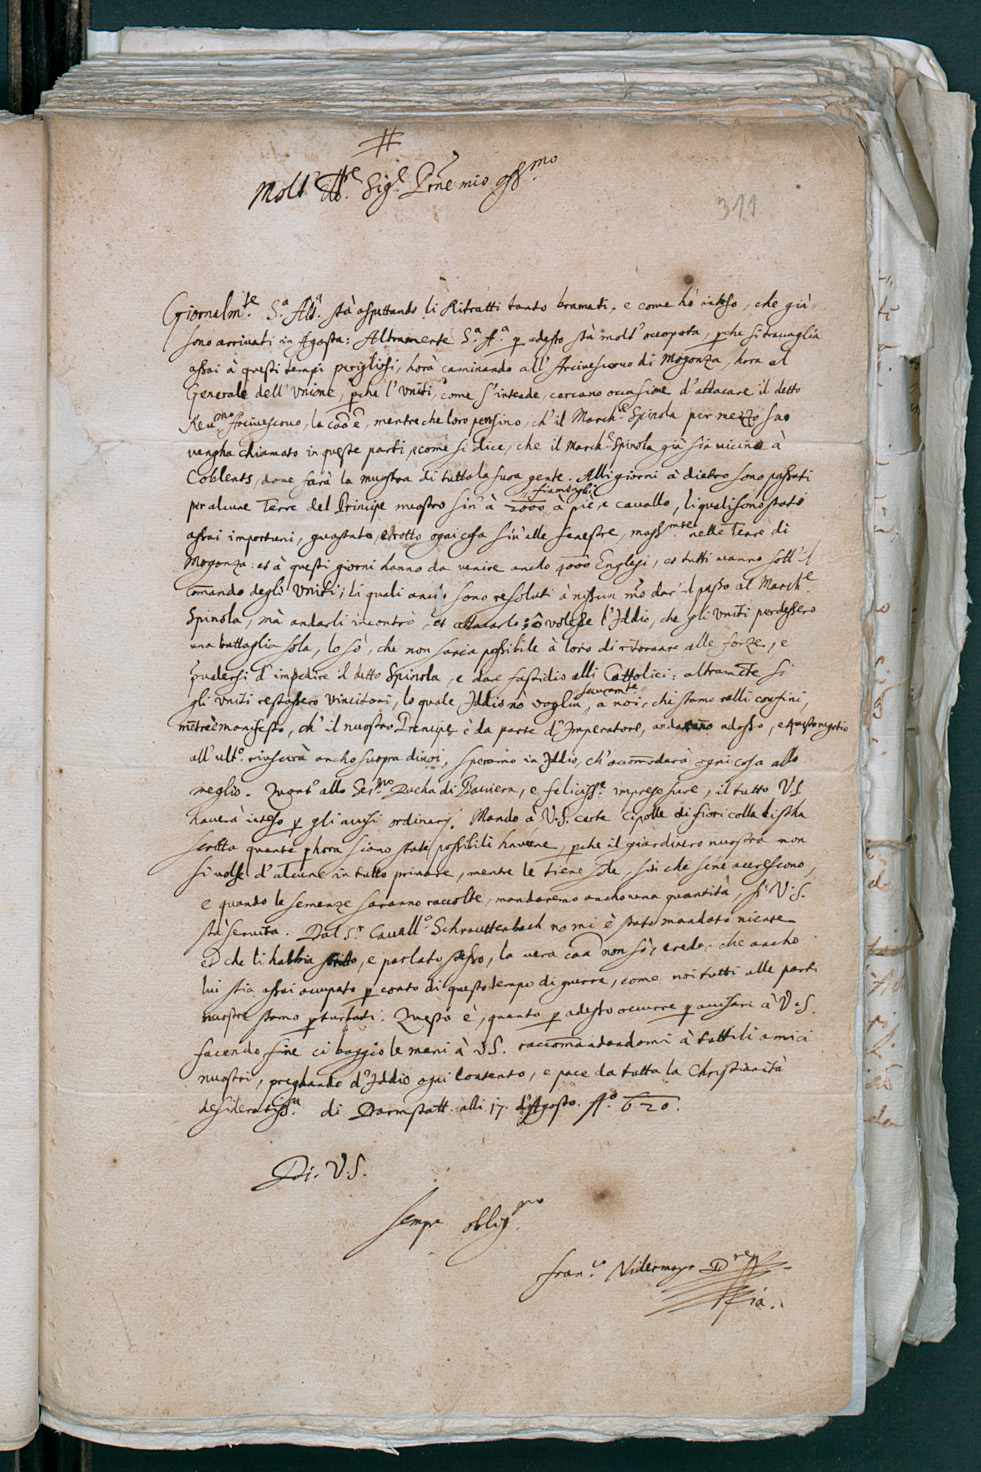 #
Molt' Ill.re Sig.r P̃rone mio oss.mo
311
Giornalm.te S.a Alt.a stà aspettando li Ritratti tanto bramati, e come hò inteso, che già
sono arrivati in Agosta: Altramente S.a A.a p adesso stà molt' occopata, pche si travaglia
assai à questi tempi perigliosi, horà caminando all' Arcivescovo di Mogonza, hora al
Generale dell' Unione, pche l' Uniti, come s'intende, cercano occasione d'attacare il detto
Rev.mo Arcivescovo, la caã è, mentre che loro pensino, ch' il March.e Spinola per mezzo suo
vengha chiamato in queste parti, e come si dice, che il March.e Spinola già sia vicino à
Coblents, dove farà la muostra di tutta la sua gente. Alli giorni à dietro sono passati
per alcune Terre del Principe nuostro sin' à 2000 fiamenghi à piè, e cavallo, li quali sono stati
assai importuni, guastato, e rotto ogni cosa sin' alle fenestre, mass.mte nelle Terre di
Mogonza: et à questi giorni hanno da venire ancho 4000 Englesi, et tutti vanno sott' il
comando degli Uniti; li quali anci sono resoluti à nissun mõ dar' il passo al March.e
Spinola, mà andarli incontro, et attacarlo: ô volesse l'Iddio, che gli Uniti perdessero
una battaglia sola, lo sò, che non saria possibile à loro di ritornare alle forze, e
d'impedire il detto Spinola, e dar fastidio alli Cattolici; altramẽte si
gli Uniti restassero vincitori, lo quale Iddio no voglia, à noi, chi stamo nelli confini,
mẽtre è manifesto, ch' il nuostro Prencipe è da parte d'Imperatore, adosso, e questo negotio
all' ult.o riuscirà ancho supra di noi, speramo in Iddio, ch' acomodarà ogni cosa allo
meglio. Quant' allo Ser.mo Ducha di Baviera, e feliciss.e imprese sue, il tutto V.S.
haverà inteso p gli avisi ordinarij. Mando à V.S. certe cipolle di fiori colla lista
scritta quante p hora siano stati possibili havérne, pche il giardinero nuostro non
si volse d'alcune in tutto privare, mentre le tiene sole, sin che sene accrescono,
e quando le semenze saranno raccolte, mandaremo anchor una quantità, si V.S.
stà servita. Dal S.r Cavall.o Schrauttenbach no mi è stato mandato niente
et che li habbia scritto, e parlato spesso, la vera caã non sò, credo, che ancho
lui stia assai occupato p conto di questo tempo di guerre, come noi tutti alle parti
nuostre stamo pturbati. Questo è, quanto p adesto occurre p avisare à V.S.
facendo fine ci baggio le mani à V.S. raccomandandomi à tutti li amici
nuostri, preghando d'Iddio ogni contento, e pace da tutta la Christianità
desideratiss.a di Darmstatt. alli 17. d'Agosto. A.o 620.
Di. V.S.
sempr. oblig.mo
Fran.co Nidermayr D.re